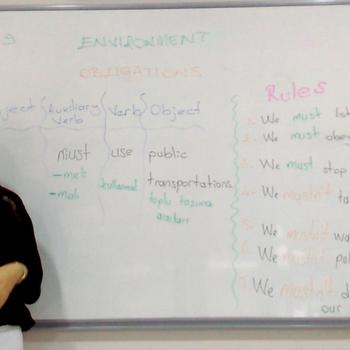 9 ENVIRONMENT
OBLIGATIONS
ject Auxiliary Verb Verb Object
must use public
-meli kullanmak transportations
-malı toplu taşıma
araçları
Rules
1. We must list
2. We must obey
3. We must stop
4. We mustn't ta
5. We mustn't wa
6. We mustn't pol
7. We mustn't d
our